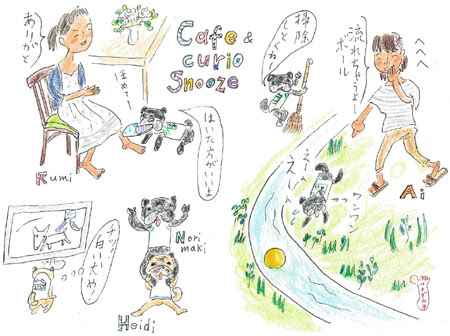 ありがと
Cafe &
curio
Snooze
ほめてー
はいた方がいいよ
Rumi
掃除
へへへ
流れちゃうよ
ボール
ワンワン
Ai
チッ
白い犬や。
Nori
maki
Heidi